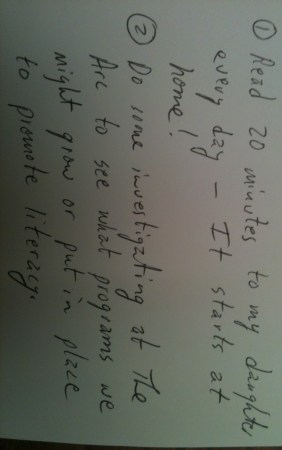 ① Read 20 minutes to my daughter
every day - It starts at
home!
② Do some investigating at The
Arc to see what programs we
might grow or put in place
to promote literacy.